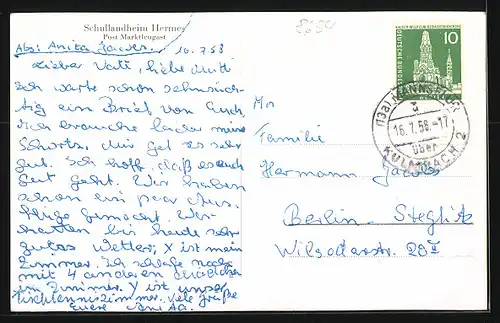 Schullandheim Hermes
Post Marktleugast
8694
Abs: Anita Jacobs. 16.7.58
Lieber Vati, liebe Mutti
ich warte schon sehnsüch-
tig ein Brief von Euch,
ich brauche leider meine
Shorts. Mir get es sehr
gut. Ich hoff, daß es auch
Geht. Wir haben
schon ein par Aus-
flüge gemacht. Wir
hatten bis heute sehr
gutes Wetter. X ist mein
Zimmer. Ich schlafe noch
mit 4 anderen Mädchen
im Zimmer. Y ist unser
Tischtenniszimmer. Viele Grüße
euere Anita.
An
Familie
Hermann Jacobs
Berlin-Steglitz
Wilsederstr. II
KAISER-WILHELM-GEDÄCHTNISKIRCHE
10
DEUTSCHE BUNDESPOST
BERLIN
(13a)
16.7.58.-17
über
KULMBACH 2